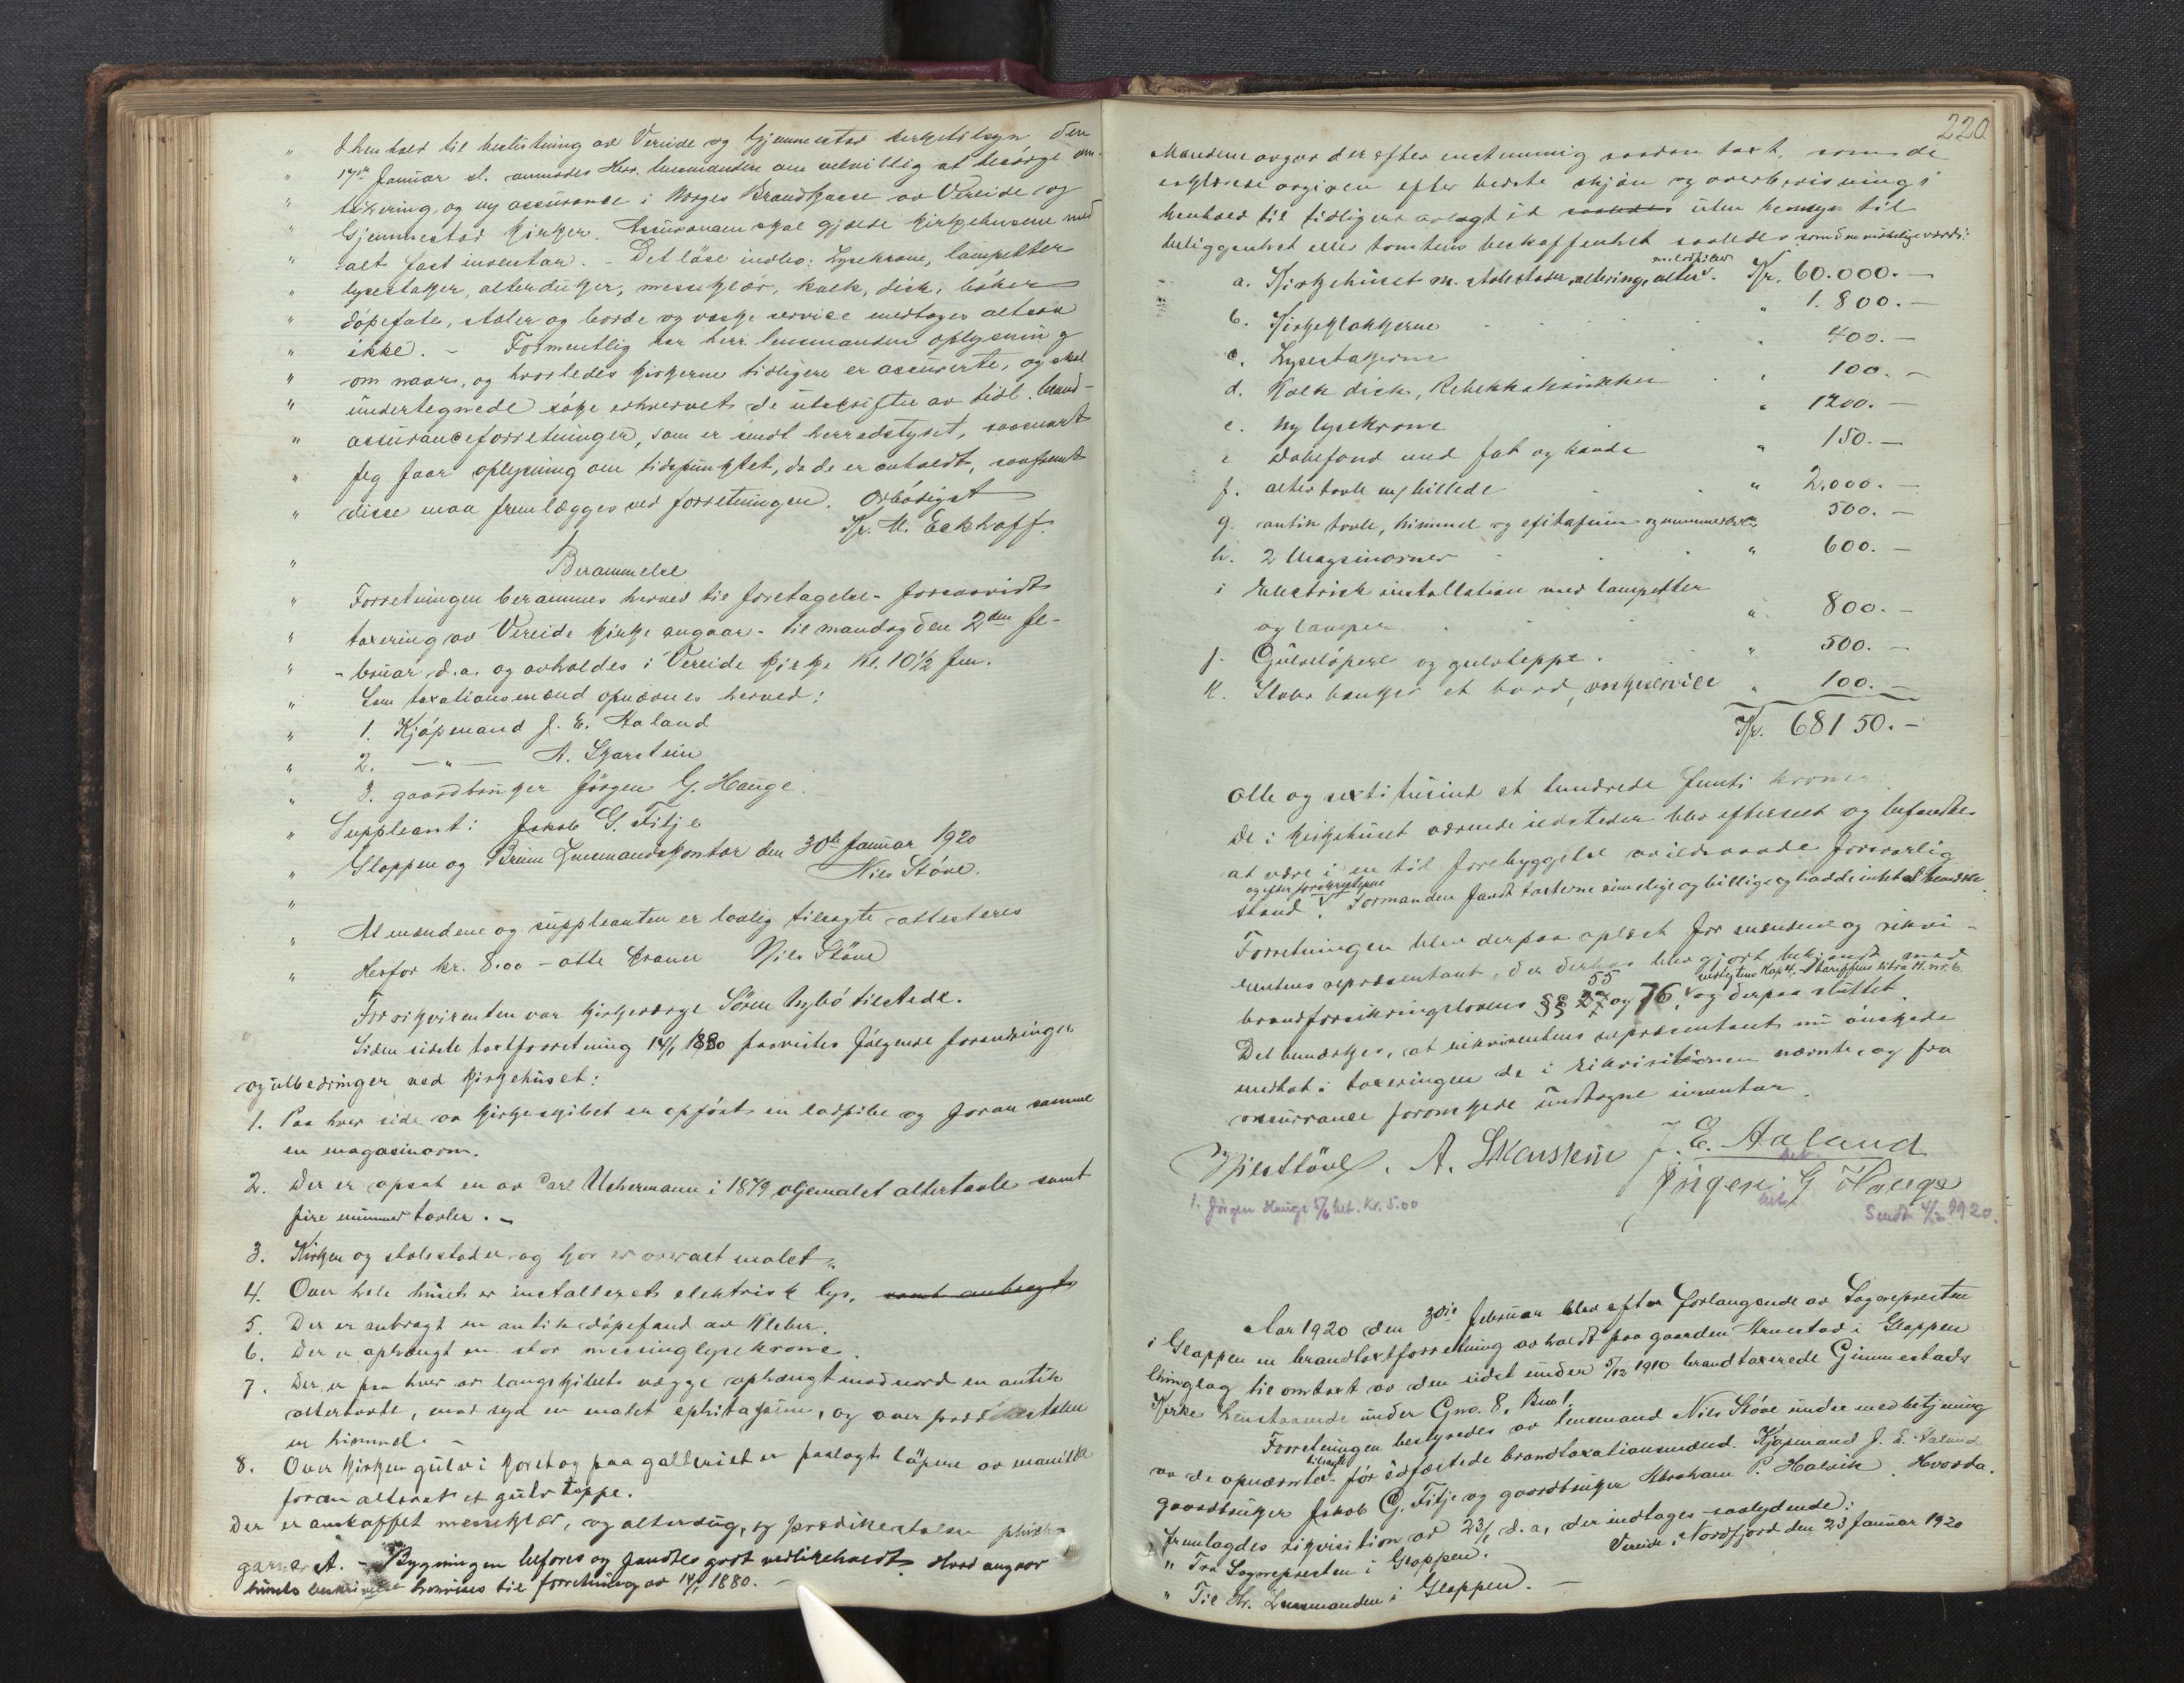 " I henhold til beslutning av Vereide og Gjemmestad kirketilsyn den
" 17de Januar d. anmodes Herr. lensmanden om velvillig at besörge om-
" taxering og ny assurance i Norges Brandkasse av Vereide og
" Gjemmestad kirker. Assurancen skal gjælde kirkehusene med
" alt fast inventar. - Det löse indbo: Lysekrone, lampetter
" lysestaker, alterduker, messeklær, kalk, disk, böker
" döpefate, stoler og borde og vaske service medtages altsaa
" ikke. - Formentlig har herr lensmanden oplysning
" om naar, og hvorledes kirkerne tidligere er assurerte, og skal
" undertegnede söke erhvervet de utskrifter av tidl. brand-
" assuranceforretninger, som er sendt herredstyret, saasnart
" jeg faar oplysning om tidspunktet, da de er avholdt, saafremt
" disse maa fremlægges ved forretningen. Ærbödigst
Kr. M. Eckhoff.
" Berammelse
" Forretningen berammes herved til foretagelse - forsaavidt
" taxering av Vereide kirke angaar - til mandag den 2den fe-
" bruar d.a. og avholdes i Vereide kirke kl. 10½ fm.
" Som taxationsmænd opnævnes herved:
" 1. Kjöpmand J. E. Aaland
" 2. —"— A. Skarstein
" 3. gaardbruker Jörgen G. Hauge.
" Suppleant: Jakob G. Fitje
" Gloppen og Breim Lensmandskontor den 30te Januar 1920
" Nils Stöve.
" At mændene og suppleanten er lovlig tilsagte attesteres
" Herfor kr. 8.00 - otte kroner Nils Stöve
For rikvirenten var kirkeværge Sören Nybö tilstede.
Siden sidste taxtforretning 14/1 1880 paavistes fölgende forandringer
og utbedringer ved kirkehuset:
1. Paa hver side av kirkeskibet er opfört en ladpibe og foran samme
en magasinovn.
2. Der er opsat en av Carl Uchermann i 1879 oljemalet altertavle samt
fire nummertavler. -
3. Kirken og stolestader og kor er overalt malet.
4. Over hele huset er installeret elektrisk lys, samt anbragt
5. Der er anbragt en antik döpefond av Kleber.
6. Der er ophængt en stor messinglysekrone.
7. Der er paa hver av langskibets vægge ophængt mod nord en antik
altertavle, mod syd en malet ephitafium, og over prædikestolen
en himmel. -
8. Over kirken gulv i koret og paa galleriet er paalagt löpere av manilla
foran alteret et gulvteppe.
Der er anskaffet messeklær, og alterdug, og prædikestolen
garneret. - Bygningen befores og fandtes godt vedlikeholdt. Hvad angaar
husets beskrivelse henvises til forretning av 14/1 1880. -
220
Mændene avgav derefter enstemmig saadan taxt, som de
erklærede avgiven efter bedste skjön og overbevisning i
henhold til tidligere avlagt ed saaledes uten hensyn til
beliggenhet eller tomtens beskaffenhet saaledes som den virkelige værdi:
a. Kirkehuset m. stolestader, altering, alter. Kr. 60.000.-
b. Kirkeklokkerne " 1.800.-
c. Lysestakerne " 400.-
d. Kalk disk, Rebekkakrukker " 100.-
e. Ny lysekrone " 1200.-
e Döbefond med fat og kande " 150.-
f. altertavle m/ billede " 2.000.-
g. antik tavle, himmel og efitafium og nummertavler 500.-
h. 2 Magsinovner " 600.-
i Electrisk installation med lampetter
og lamper " 800.-
j. Gulvlöpere og gulvteppe. " 500.-
k. Stoler bænker et bord, vaskeservice " 100.-
Kr. 68150.-
Otte og sexti tusind et hundrede femti kroner
De i kirkehuset værende ildsteder blev efterseet og befandtes
at være i en til forebyggelse av ildsvaade forsvarlig
og efter forskrifterne
stand. Formanden fandt taxterne rimelige og billige og hadde intet at bemerke
Forretningen blev derpaa oplæst for mændene og rikvi-
rentens repræsentant, der derhos blev gjort bekjendt med
55 vedtektens Kap. 4. tariffens litra H. nr. 6.
brandforsikringslovens §§ 27 og 76, og derpaa sluttet.
Det bemærkes, at rikvirentens repræsentant nu önskede
medtat i taxeringen de i rikvisitionen nævnte, og fra
assurance forønskede undtagne inventar.
Nils Stöve. A. Skarstein J. E. Aaland
Jörgen G Hauge
1. Jörgen Hauge 5/6 bet. Kr. 5.00
bet.
bet
Sendt 4/2 1920.
Aar 1920 den 3die februar blev efter forlangende av Sogneprestem
i Gloppen en brandtaxtforretning avholdt paa gaarden Arnestad i Gloppen
thinglag til omtaxt av den sidst under 5/12 1910 brandtaxerede Gimmestads
Kirke henstaaende under Gno. 8, Bno 1.
Forretningen bestyredes av lensmand Nils Stöve under medbetjening
tilsagte
av de opnævnte før edfæstede brandtaxationsmænd. Kjöpmand J. E. Aaland
gaardbruker Jakob G. Fitje og gaardbruker Abraham P. Holvik. Hvorda.
Fremlagdes rikvisition av 23/1 d.a, der indtages saalydende:
" Fra Sognepresten i Gloppen. Vereide i Nordfjord den 23 Januar 1920
" Til Hr. Lensmanden i Gloppen. -